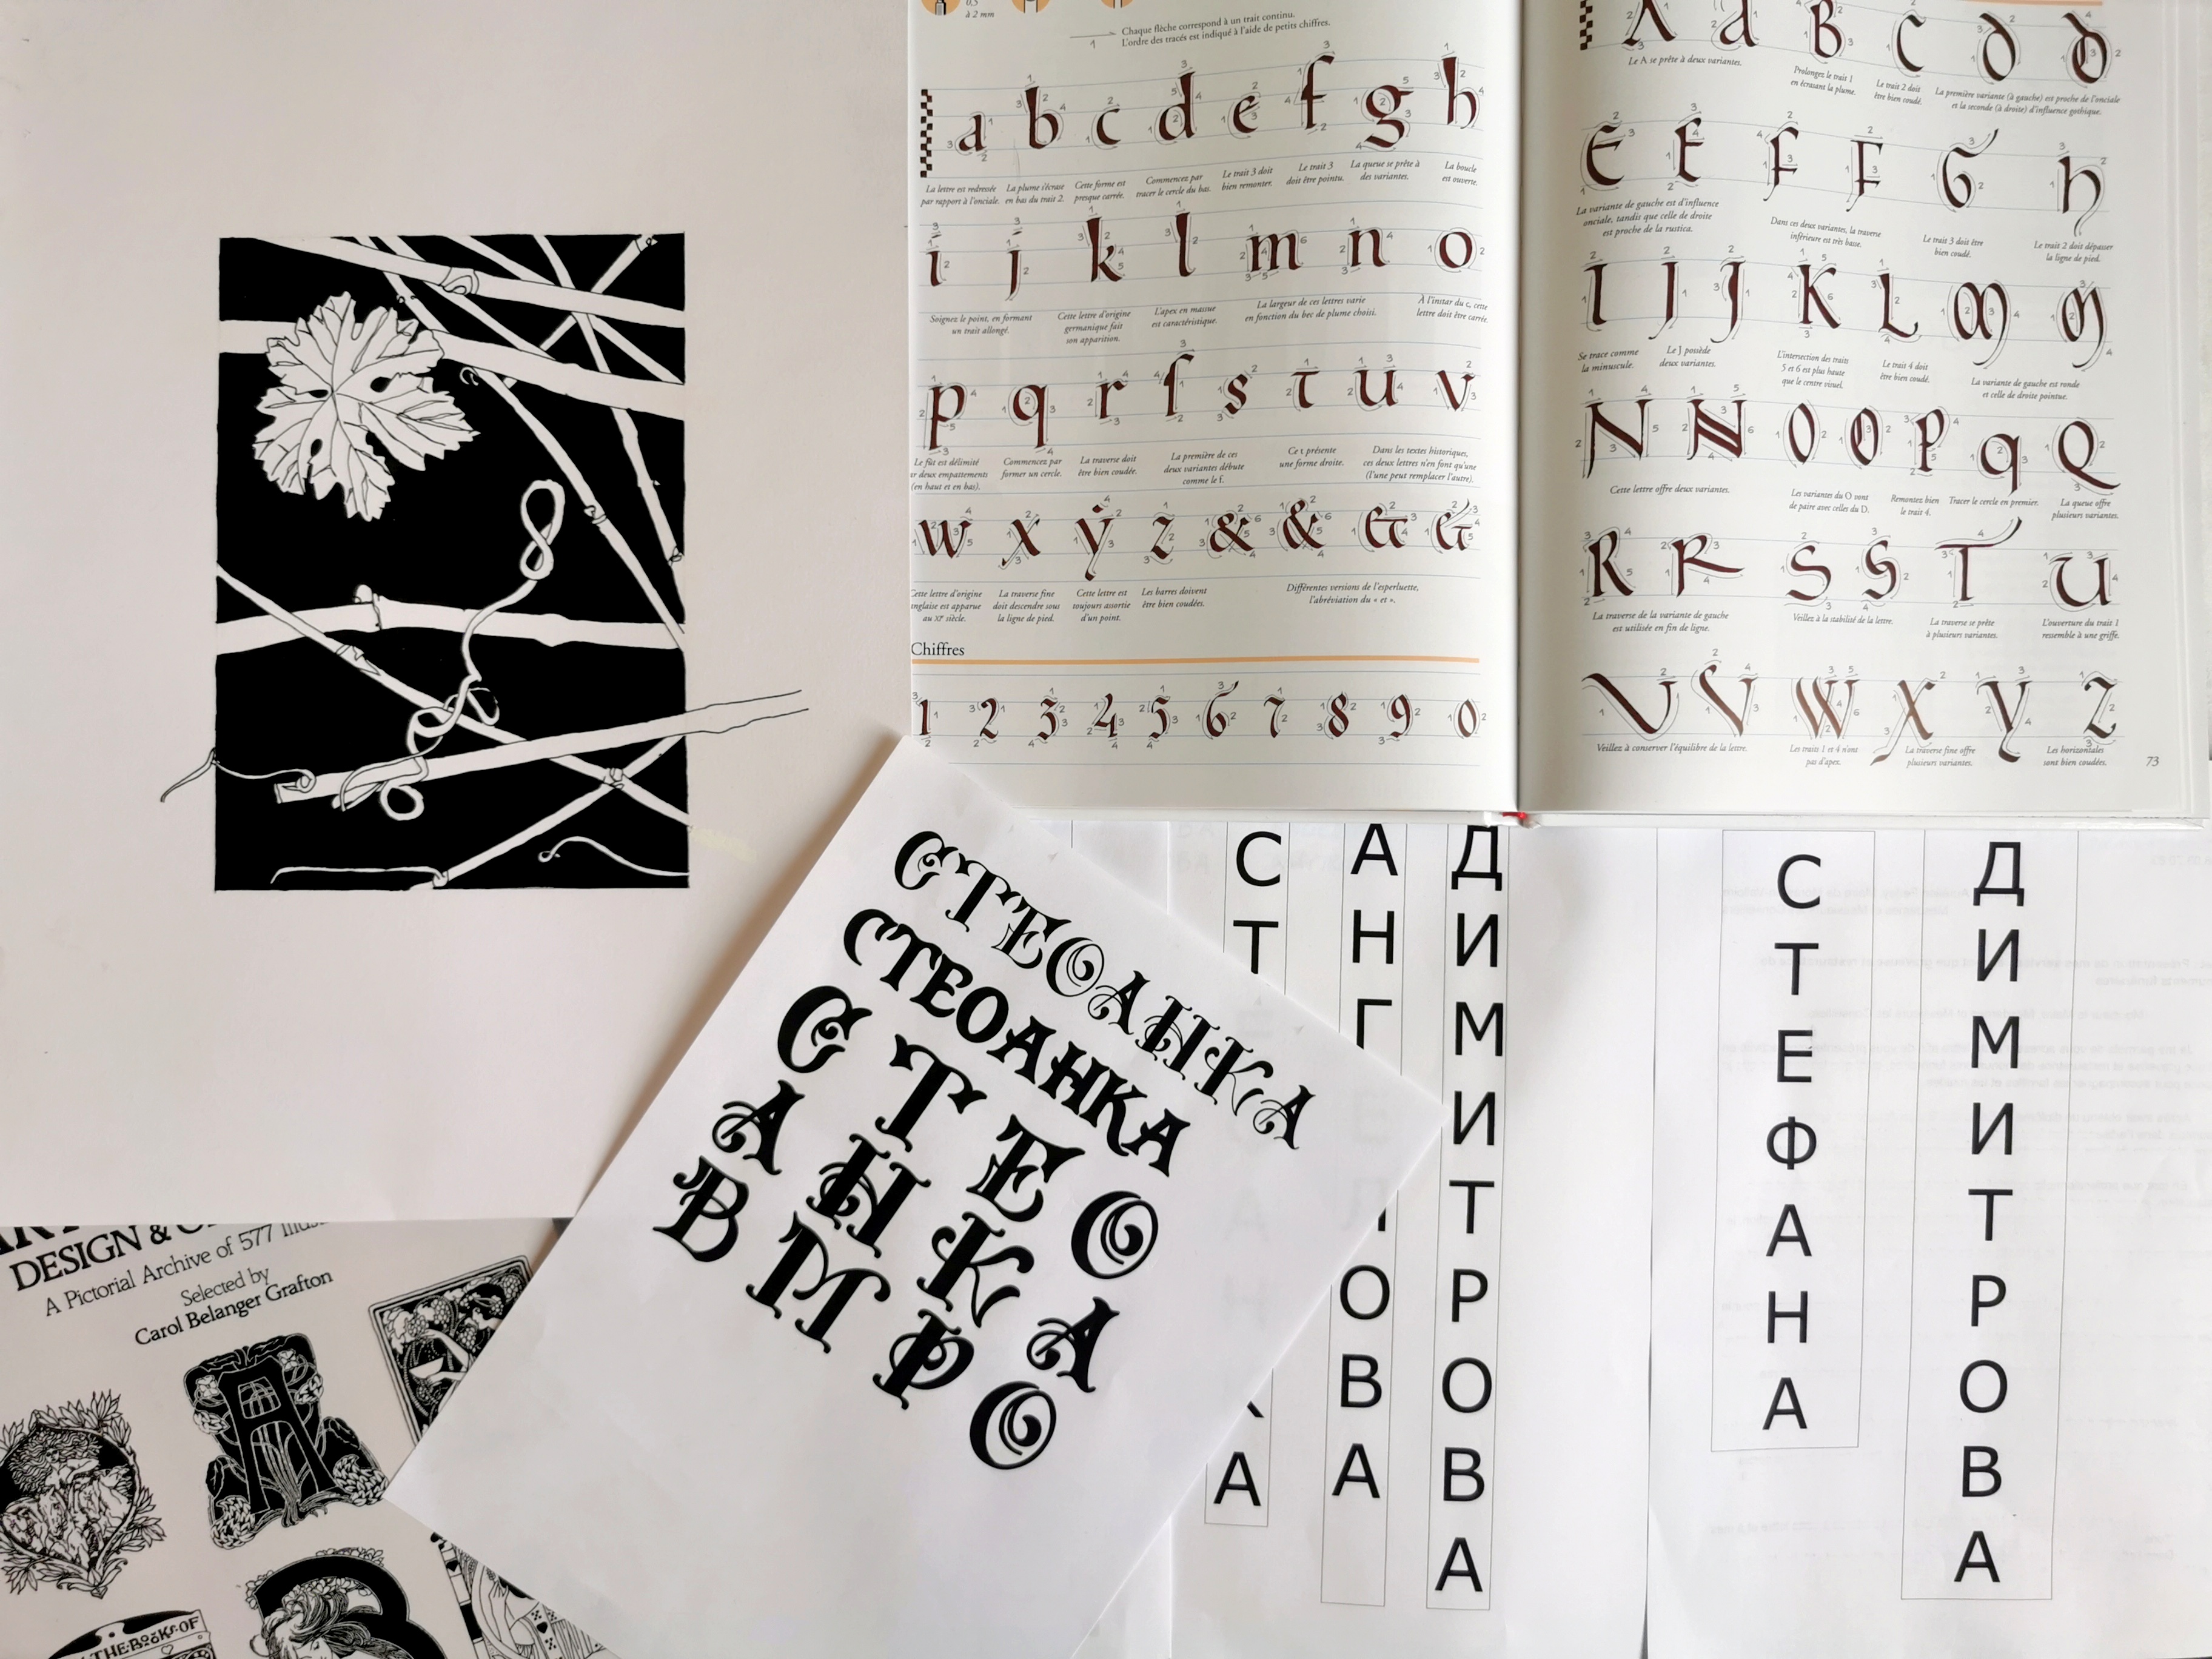 0,5
à 2 mm
Chaque flèche correspond à un trait continu.
L'ordre des tracés est indiqué à l'aide de petits chiffres.
a b c d e f g h
La lettre est redressée
par rapport à l'onciale.
La plume s'écrase
en bas du trait 2.
Cette forme est
presque carrée.
Commencez par
tracer le cercle du bas.
Le trait 3 doit
bien remonter.
Le trait 3
doit être pointu.
La queue se prête à
des variantes.
La boucle
est ouverte.
i j k l m n o
Soignez le point, en formant
un trait allongé.
Cette lettre d'origine
germanique fait
son apparition.
L'apex en massue
est caractéristique.
La largeur de ces lettres varie
en fonction du bec de plume choisi.
À l'instar du c, cette
lettre doit être carrée.
p q r ſ s t u v
Le fût est délimité
deux empattements
(en haut et en bas).
Commencez par
former un cercle.
La traverse doit
être bien coudée.
La première de ces
deux variantes débute
comme le f.
Ce t présente
une forme droite.
Dans les textes historiques,
ces deux lettres n'en font qu'une
(l'une peut remplacer l'autre).
w x ẏ z & & & &
Cette lettre d'origine
anglaise est apparue
au XIe siècle.
La traverse fine
doit descendre sous
la ligne de pied.
Cette lettre est
toujours assortie
d'un point.
Les barres doivent
être bien coudées.
Différentes versions de l'esperluette,
l'abréviation du « et ».
Chiffres
1 2 3 4 5 6 7 8 9 0
A a B C D D
Le A se prête à deux variantes.
Prolongez le trait 1
en écrasant la plume.
Le trait 2 doit
être bien coudé.
La première variante (à gauche) est proche de l'onciale
et la seconde (à droite) d'influence gothique.
E E F F G H
La variante de gauche est d'influence
onciale, tandis que celle de droite
est proche de la rustica.
Dans ces deux variantes, la traverse
inférieure est très basse.
Le trait 3 doit être
bien coudé.
Le trait 2 doit dépasser
la ligne de pied.
I J J K L M M
Se trace comme
la minuscule.
Le J possède
deux variantes.
L'intersection des traits
5 et 6 est plus haute
que le centre visuel.
Le trait 4 doit
être bien coudé.
La variante de gauche est ronde
et celle de droite pointue.
N N O O P q Q
Cette lettre offre deux variantes.
Les variantes du O vont
de paire avec celles du D.
Remontez bien
le trait 4.
Tracer le cercle en premier.
La queue offre
plusieurs variantes.
R R S S T U
La traverse de la variante de gauche
est utilisée en fin de ligne.
Veillez à la stabilité de la lettre.
La traverse se prête
à plusieurs variantes.
L'ouverture du trait 1
ressemble à une griffe.
V V W X Y Z
Veillez à conserver l'équilibre de la lettre.
Les traits 1 et 4 n'ont
pas d'apex.
La traverse fine offre
plusieurs variantes.
Les horizontales
sont bien coudées.
73
СТЕОАНКА
СТЕОАНКА
С Т Е О
А Н К А
В М Р О
С
Т
А
А
Н
Г
О
В
А
Д
И
М
И
Т
Р
О
В
А
С
Т
Е
Ф
А
Н
А
Д
И
М
И
Т
Р
О
В
А
DESIGN &
A Pictorial Archive of 577
Selected by
Carol Belanger Grafton
THE·BOOKS·OF